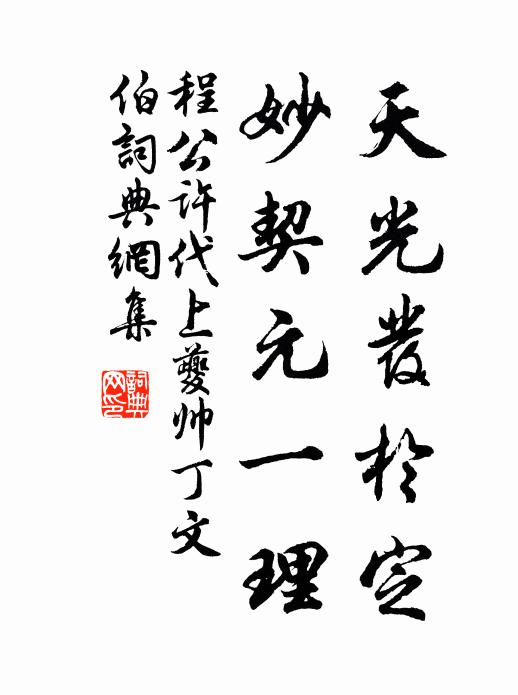 天光發於定
妙契元一理
程公許代上夔帅丁文
伯詞典網集
詞典
网印